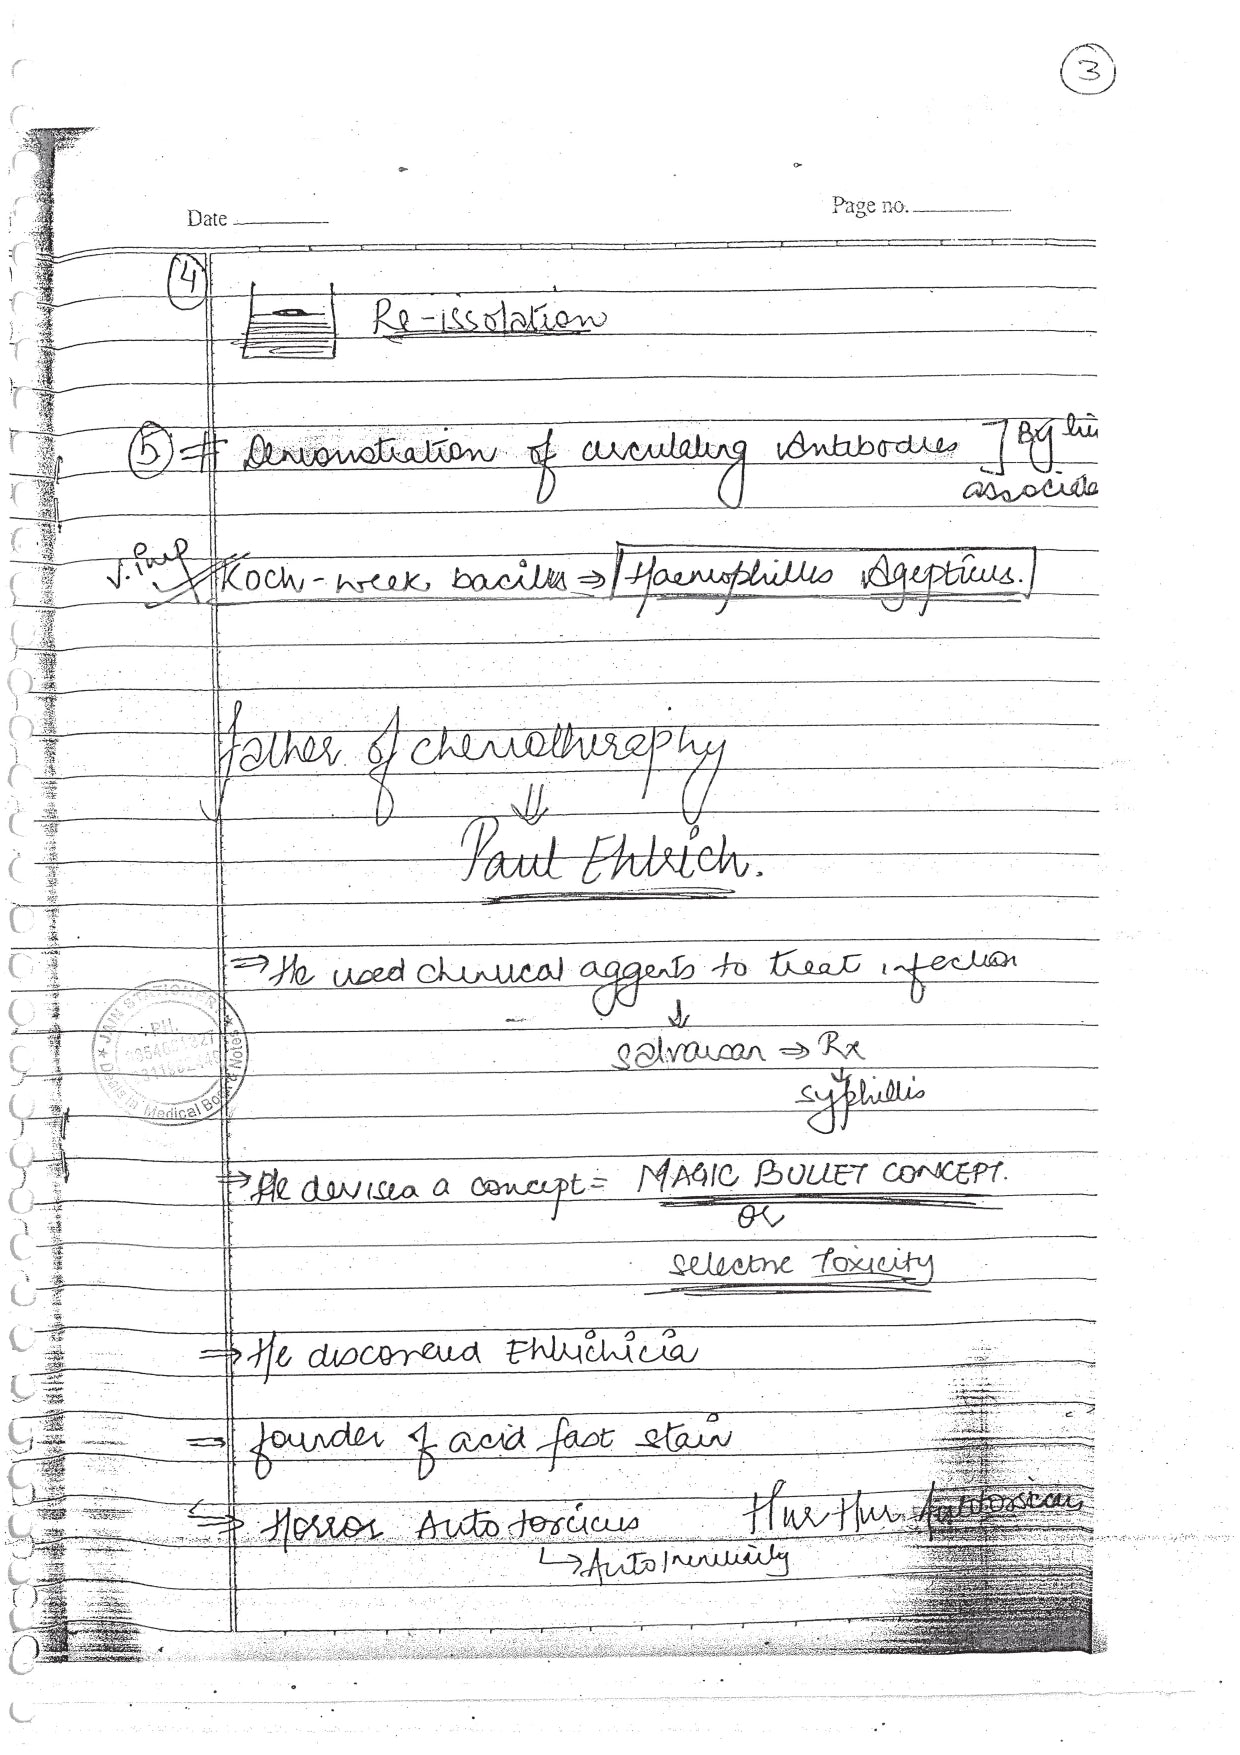 3
Date
Page no.
4
Re-issolation
5 Demonstration of circulating Antibodies ] By his
associate
V. imp Koch-week bacillus ⇒ Haemophillis Agepticus.
father of chemotheraphy
⇓
Paul Ehlrich.
⇒ He used chemical aggents to treat infection
↓
salvarsan ⇒ Rx
↓
syphillis
⇒ He devised a concept = MAGIC BULLET CONCEPT.
or
selective Toxicity
⇒ He discovered Ehlrichicia
⇒ founder of acid fast stain
⇒ Horror Autotoxicus
↳ Auto
JAIN STATIONER
PH.
Medical Notes